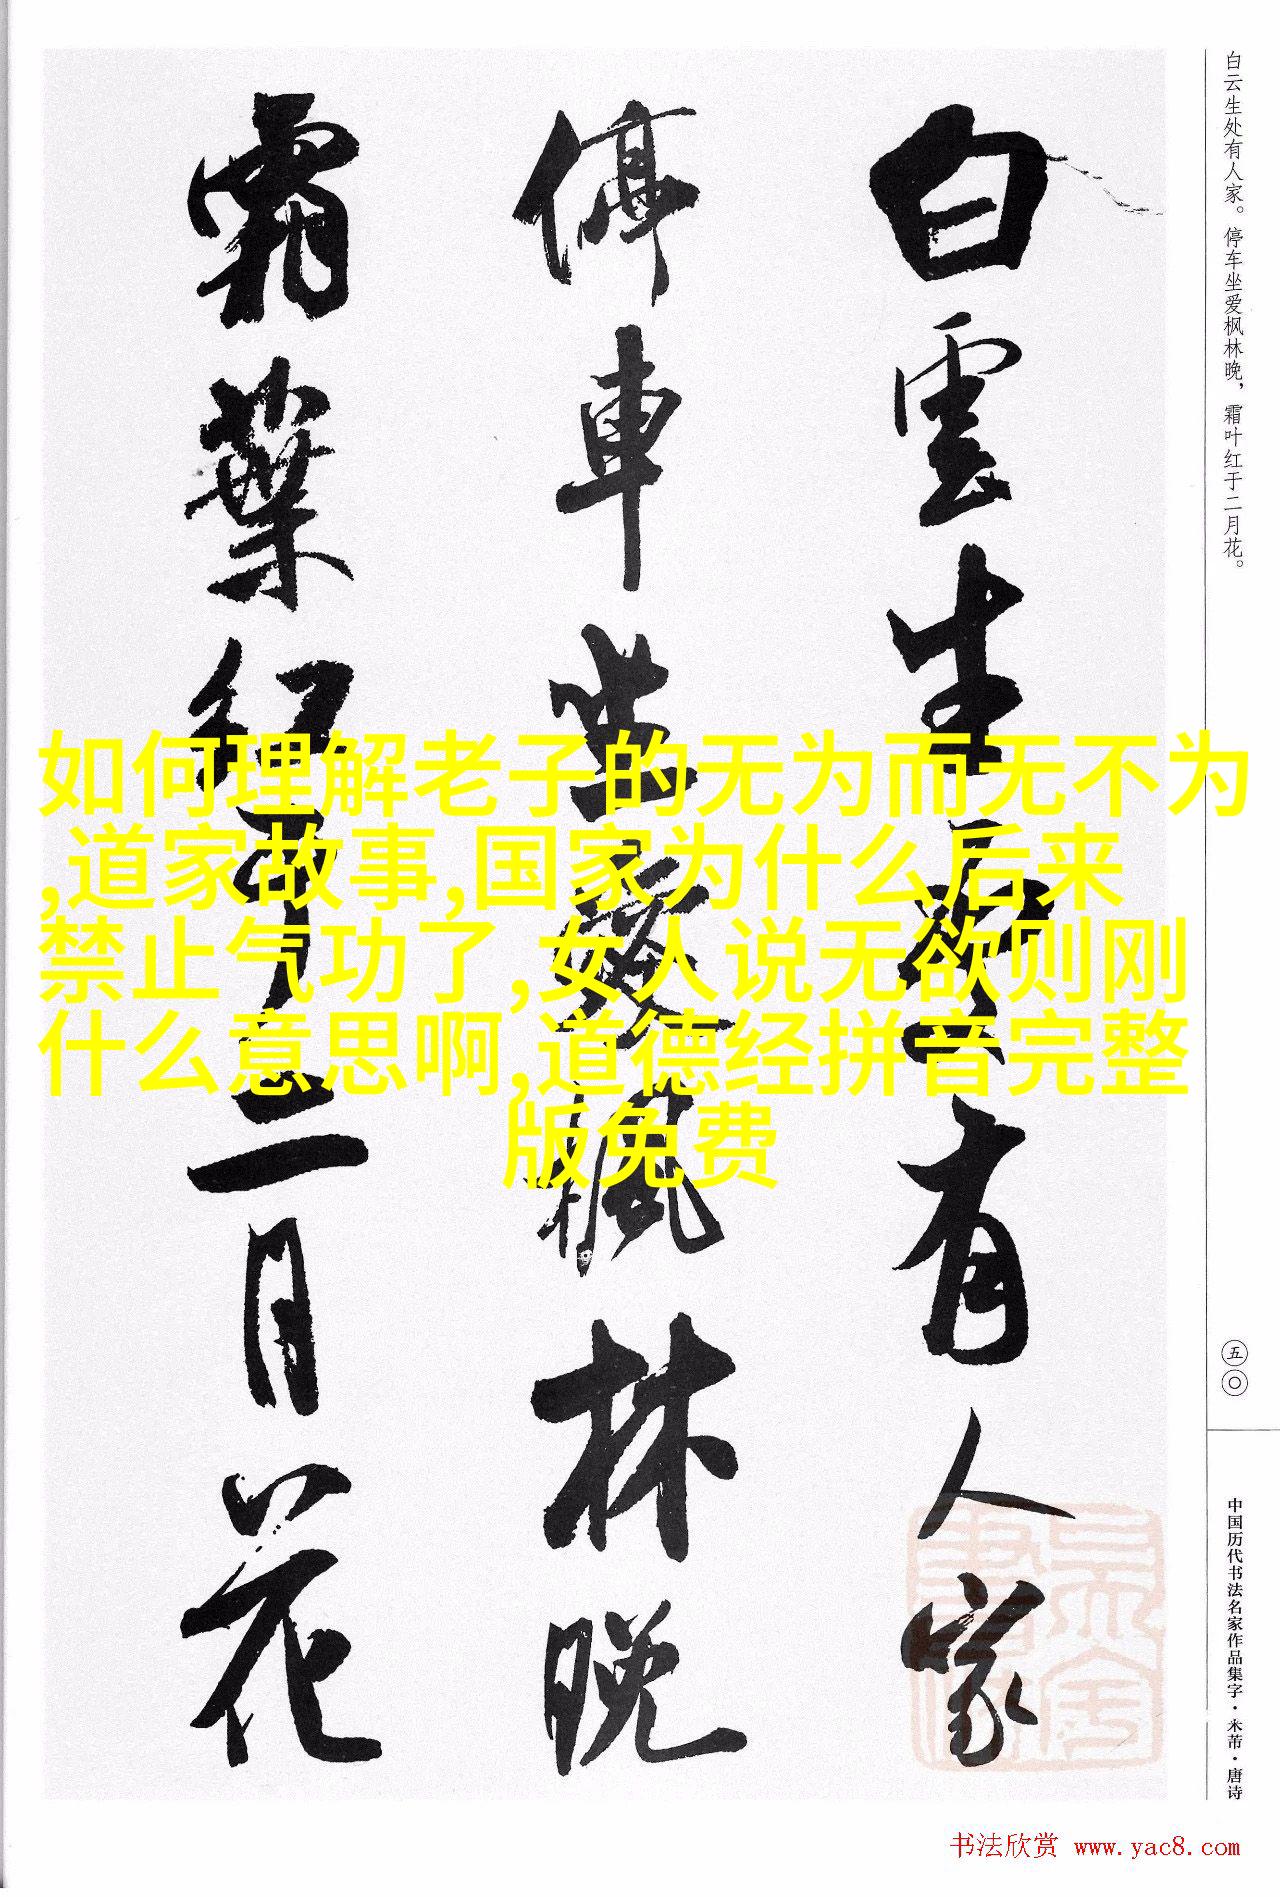 白云生处有人家。停车坐爱枫林晚，霜叶红于二月花。
白雲生處有人家
停車坐愛楓林晚
霜葉紅于二月花
如何理解老子的无为而无不为
,道家故事,国家为什么后来
禁止气功了,女人说无欲则刚
什么意思啊,道德经拼音完整
版免费
五〇
中国历代书法名家作品集字·米芾·唐诗
书法欣赏 www.yac8.com